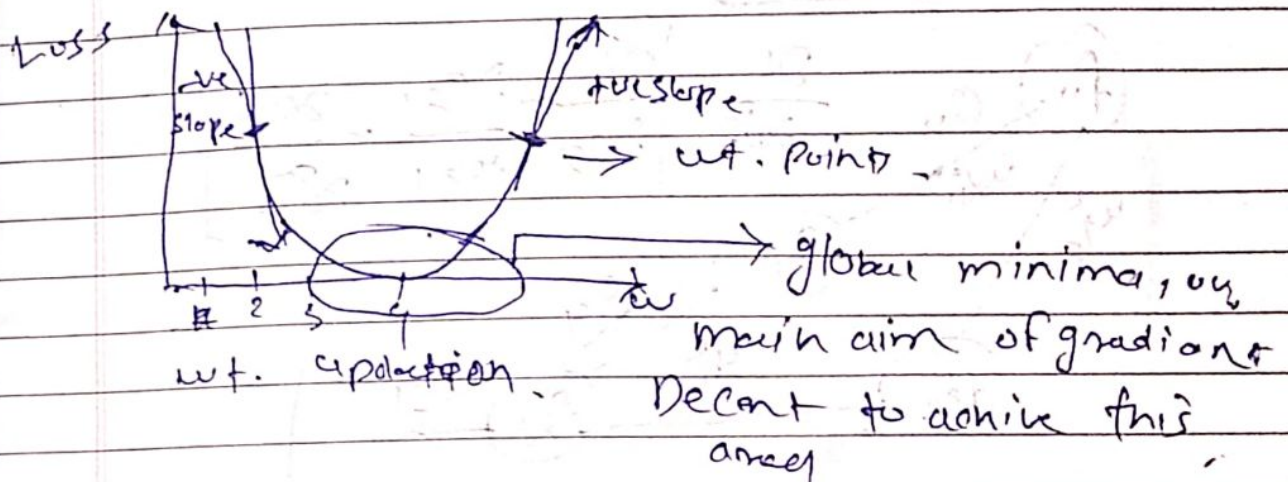 Loss
-ve
slope
+ve slope
→ wt. Point
global minima, our
main aim of gradiant
Decent to achive this
area
2 3 4
w
wt. updation.